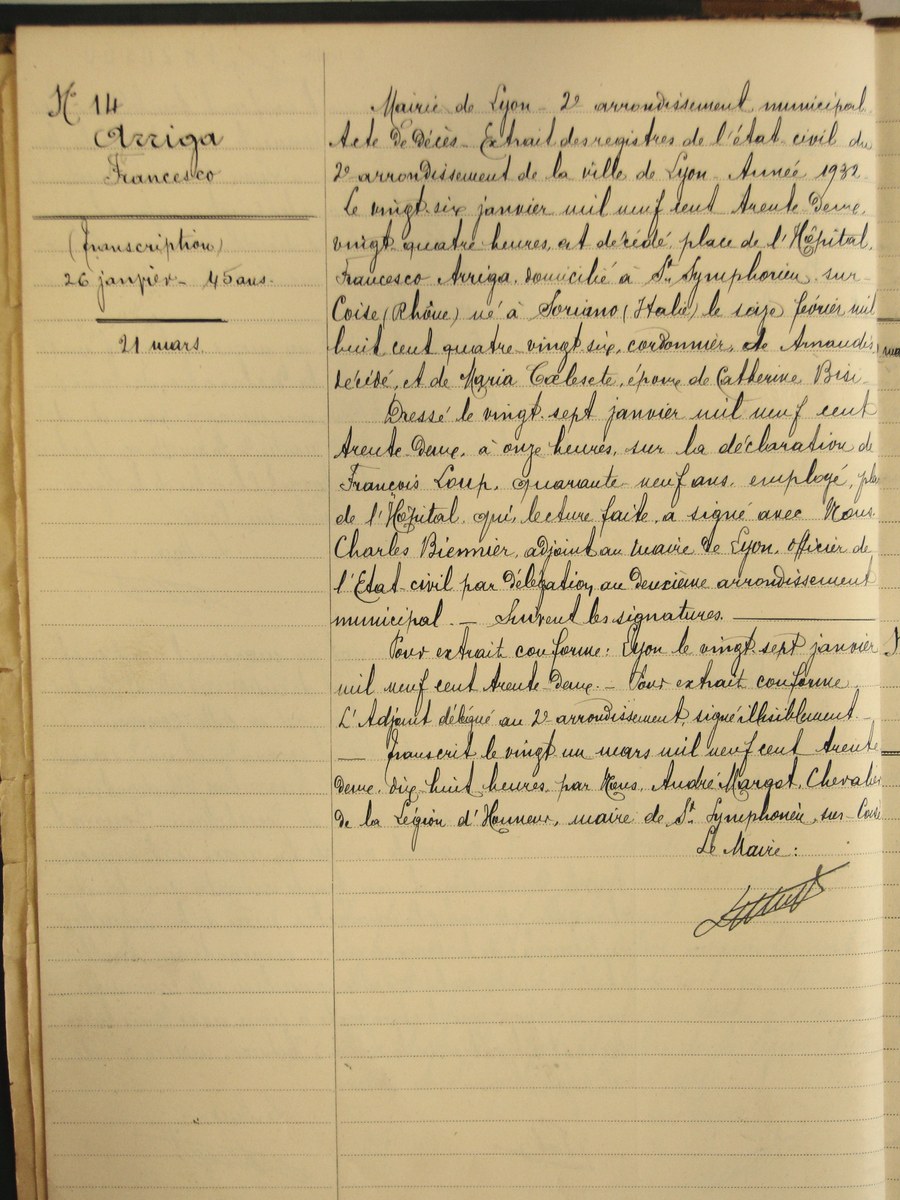 N° 14
Arriga
Francesco
(Transcription)
26 janvier - 45 ans.
21 mars.
Mairie de Lyon - 2e arrondissement municipal.
Acte de décès - Extrait des registres de l'état civil du
2e arrondissement de la ville de Lyon - Année 1932 -
Le vingt-six janvier mil neuf cent trente-deux,
vingt-quatre heures, est décédé, place de l'Hôpital,
Francesco Arriga, domicilié à St Symphorien-sur-
Coise (Rhône) né à Soriano (Italie) le seize février mil
huit cent quatre-vingt-six, cordonnier, de Arnaudis,
décédé, et de Maria Coelesete, époux de Catherine Bisi -
Dressé le vingt-sept janvier mil neuf cent
trente-deux, à onze heures, sur la déclaration de
François Loup, quarante-neuf ans, employé, pla
de l'Hôpital, qui, lecture faite, a signé avec Nous
Charles Biennier, adjoint au maire de Lyon, officier de
l'Etat-civil par délégation, au deuxième arrondissement
municipal. - Suivent les signatures.
Pour extrait conforme : Lyon le vingt-sept janvier
mil neuf cent trente-deux. - Pour extrait conforme
L'Adjoint délégué au 2e arrondissement, signé illisiblement -
Transcrit le vingt un mars mil neuf cent trente
deux, dix-huit heures, par Nous, André Margot, Chevalier
de la Légion d'Honneur, maire de St Symphorien-sur-Coise
Le Maire :